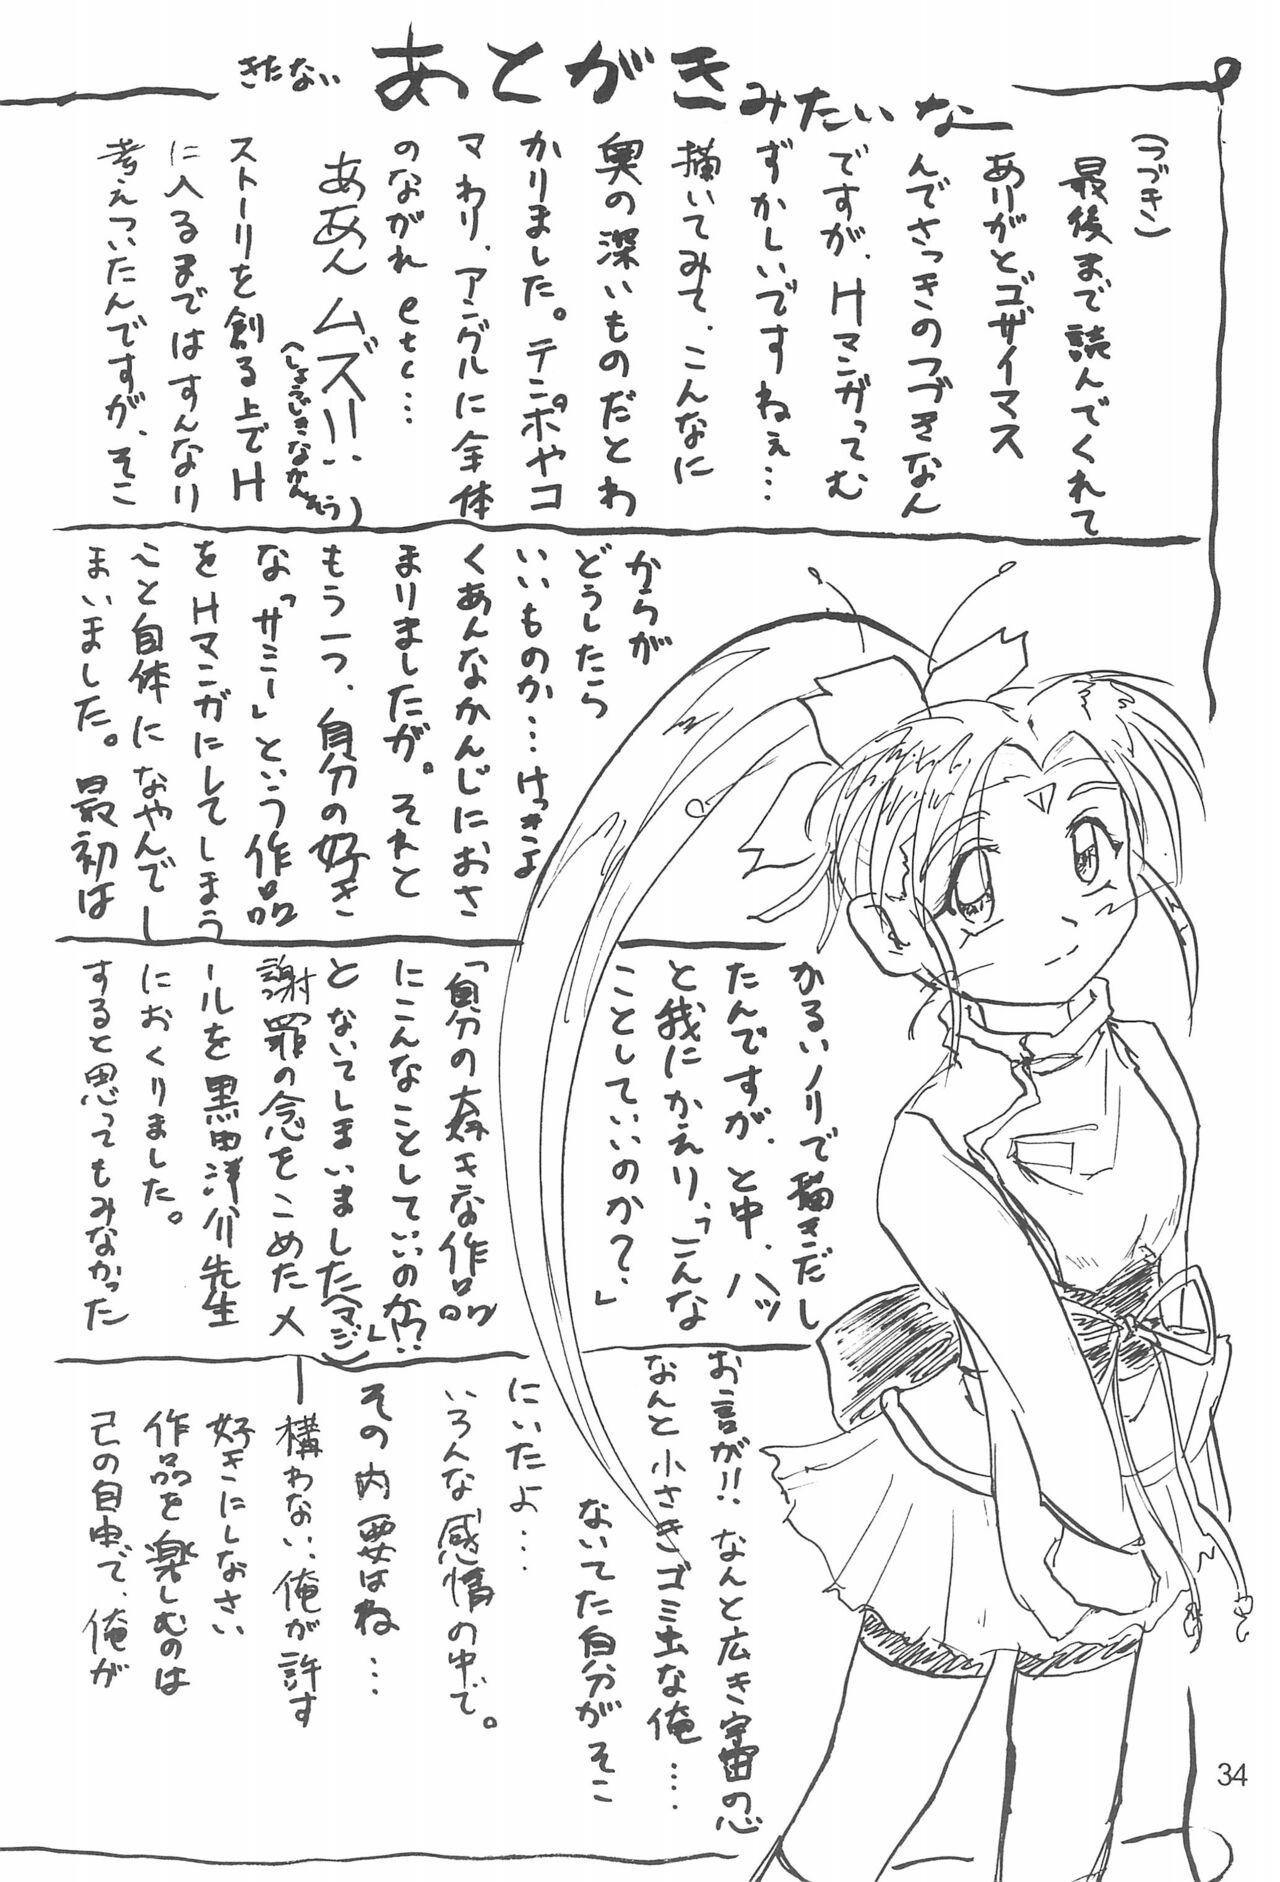 きたない あとがき みたいな
(つづき)
最後まで読んでくれて
ありがとゴザイマス
んでさっきのつづきなん
ですが、Hマンガってむ
ずかしいですねぇ…
描いてみて、こんなに
奥の深いものだとわ
かりました。テンポやコ
マわり、アングルに全体
のながれ etc…
ああん ムズー!!
(しょうじきなかんそう)
ストーリを創る上でH
に入るまではすんなり
考えついたんですが、そこ
からが
どうしたら
いいものか…けっきょ
くあんなかんじにおさ
まりましたが。それと
もう一つ、自分の好き
な「サミー」という作品
をHマンガにしてしまう
こと自体になやんでし
まいました。最初は
かるいノリで描きだし
たんですが、と中、ハッ
と我にかえり、「こんな
ことしていいのか?」
「自分の大好きな作品
にこんなことしていいのか!?」
とないてしまいました(マジ)
謝罪の念をこめたメ
ールを黒田洋介先生
におくりました。
すると思ってもみなかった
お言が!! なんと広き宇宙の心
なんと小さきゴミ虫な俺…
ないてた自分がそこ
にいたよ…
いろんな感情の中で。
その内要はね…
―構わない、俺が許す
好きにしなさい
作品を楽しむのは
己の自由で、俺が
34